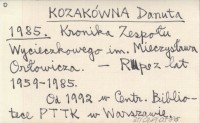 D
KOZAKÓWNA Danuta
1985. Kronika Zespołu
Wycieczkowego im. Mieczysława
Orłowicza. — Rkpsz lat
1959-1985.
Od 1992 w Centr. Biblio-
tece PTTK w Warszawie